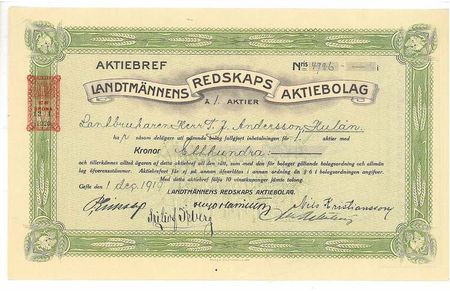 AKTIEBREF
Nris 4796
LANDTMÄNNENS REDSKAPS AKTIEBOLAG
À 1. AKTIER
Landtbrukaren Herr F. J. Andersson, Hulán,
har såsom delägare uti nämnda bolag fullgjort inbetalningen för 1 aktier med
Kronor Etthundra
och tillerkännes alltså ägaren af detta aktiebref all den rätt, som med den för bolaget gällande bolagsordning och allmän
lag öfverensstämmer. Aktiebrefvet får ej på annan öfverlåtas i annan ordning än § 6 i bolagsordningen angifver.
Med detta aktiebref följa 10 vinstkuponger jämte talong.
Gefle den 1 dec. 1919
LANDTMÄNNENS REDSKAPS AKTIEBOLAG.
Nils Kristiansson